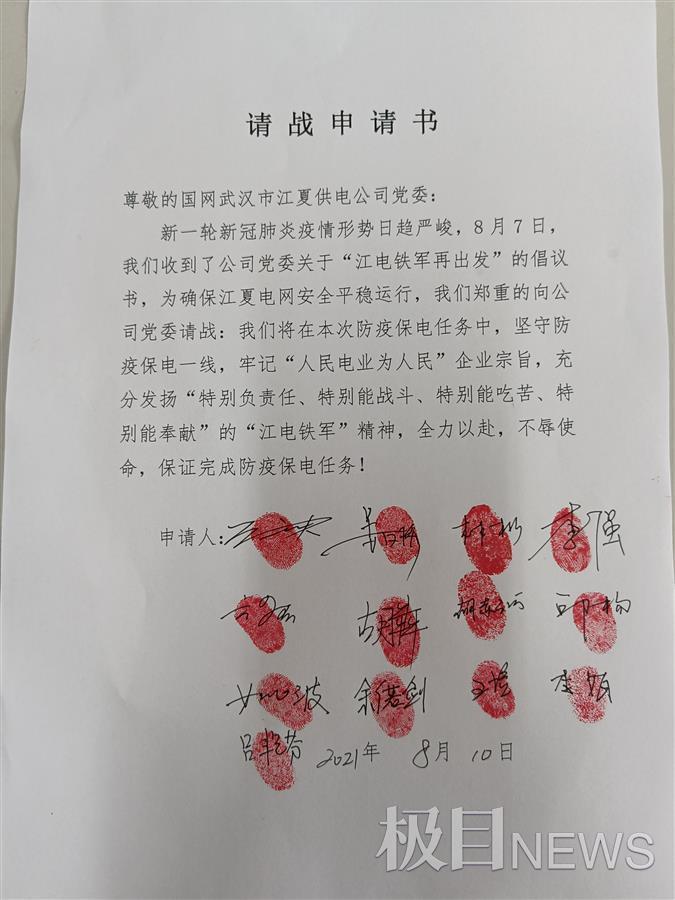 请战申请书
尊敬的国网武汉市江夏供电公司党委：
新一轮新冠肺炎疫情形势日趋严峻，8月7日，
我们收到了公司党委关于“江电铁军再出发”的倡议
书，为确保江夏电网安全平稳运行，我们郑重的向公
司党委请战：我们将在本次防疫保电任务中，坚守防
疫保电一线，牢记“人民电业为人民”企业宗旨，充
分发扬“特别负责任、特别能战斗、特别能吃苦、特
别能奉献”的“江电铁军”精神，全力以赴，不辱使
命，保证完成防疫保电任务！
申请人：李强
余若剑
2021年 8月 10日
极目NEWS